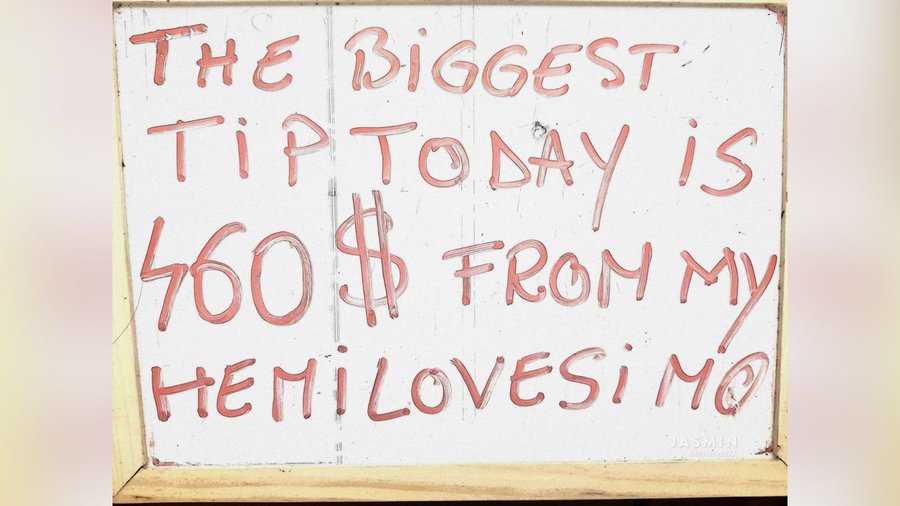 THE BiGGEST
TiP TODAY iS
460$ FROM MY
HEMiLOVESiMO
JASMIN